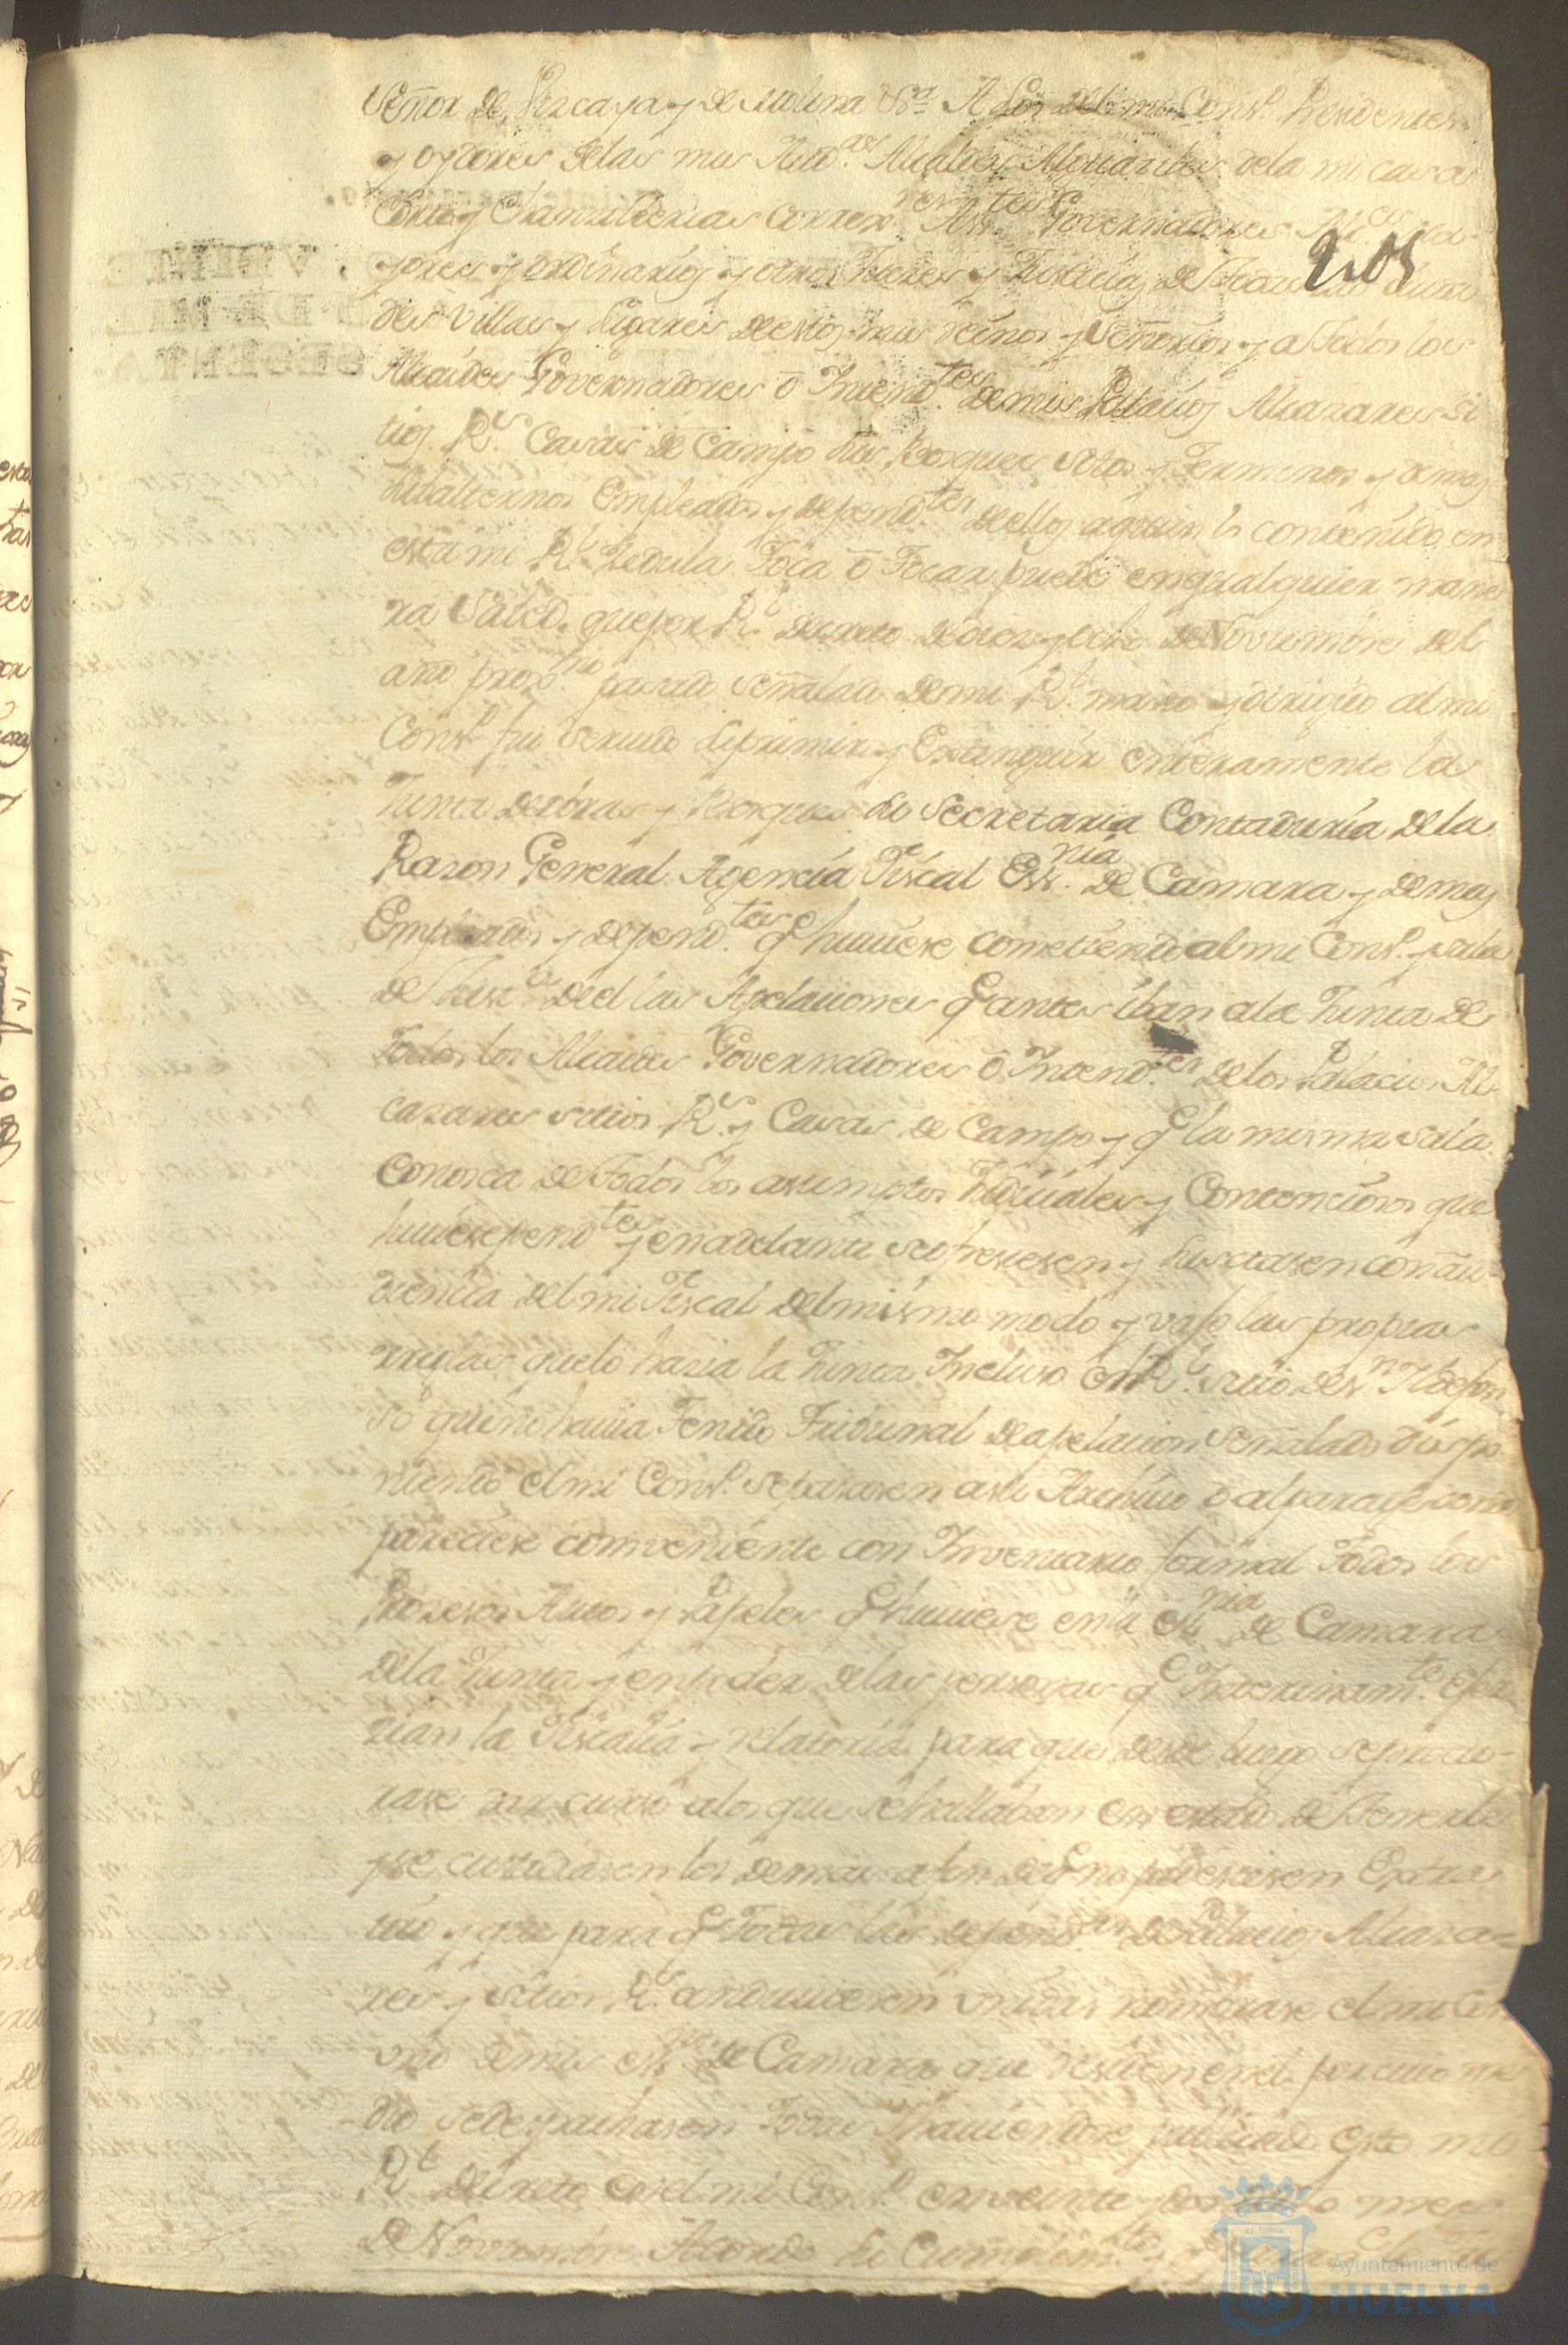 Señor de Vizcaya y de Molina &ra A Los del mi Cons.º Presidentes
y oydores delas mis Aud.as Alcaldes Alguaciles dela mi casa
Corte y Chanzillerias Correx.res Asis.tes Governadores Alc.es ma-
205
yores y ordinarios y otros Jueces y Justicias de todas las Ciuda
des Villas y Lugares de estos mis reinos y Señorios y a Todos los
Alcaides Governadores ô Intend.tes de mis Palacios Alcazares Si
tios R.s Casas de Campo sus Bosques Sotos y Terminos y demas
subalternos Empleados y depend.tes de ellos a quien lo contenido en
esta mi R.l Zedula Toca ô Tocar puede en qualquier mane
ra Sabed. que por R.l decreto de diez y ocho de Noviembre del
año prox.mo pasado señalado de mi R.l mano y dirigido al mi
Cons.º fui servido suprimir y Extinguir enteramente la
Junta de obras y Bosques su Secretaria Contaduria de la
Razon General Agencia Fiscal Ess.nia de Camara y demas
Empleados y depend.tes q.e huuiese cometiendo al mi Cons.º y sala
de Just.a de el las Apelaciones q.e antes iban ala Junta de
todos los Alcaides Governadores ô Intend.tes de los Palacios Al
cazares sitios R.s y Casas de Campo y q.e la misma sala
Conosca de Todos los asumptos Judiciales y Contenciosos que
huuiese pend.tes y en adelante se ofreciesen y suscitasen con au-
diencia del mi Fiscal del mismo modo y vajo las propias
reglas que lo hazia la Junta Incluso el R.l sitio de S.n Ildefon
so que no hauia Tenido Tribunal de apelacion señalado dispo
niendo el mi Cons.º se pasasen a su Archiuo o al parage que mas
pareciese comveniente con Inventario formal Todos los
Prozesos Autos y Papeles q.e huuiese en la ess.nia de Camara
dela Junta y en poder delas personas q.e Interinam.te exer
zian la Fiscalia y relatoria para que desde luego se procu-
rase dar curso alos que se hallaban en estado de Tenerle
y se custodiasen los demas a fin de q.e no padeciesen Extra
uio y que para q.e Todas las depend.as de Palacios Alcaza-
res y sitios R.s anduuiesen unidas nombrase el mi Con
uno de mis ess.nos de Camara que reside en el por cuio me
dio se despachasen Todas I hauiendose publicado este mi
R.l decreto en el mi Cons.º en veinte y dos mes
de Noviembre Acordo su Cumplim.to y
Ayuntamiento de
HUELVA